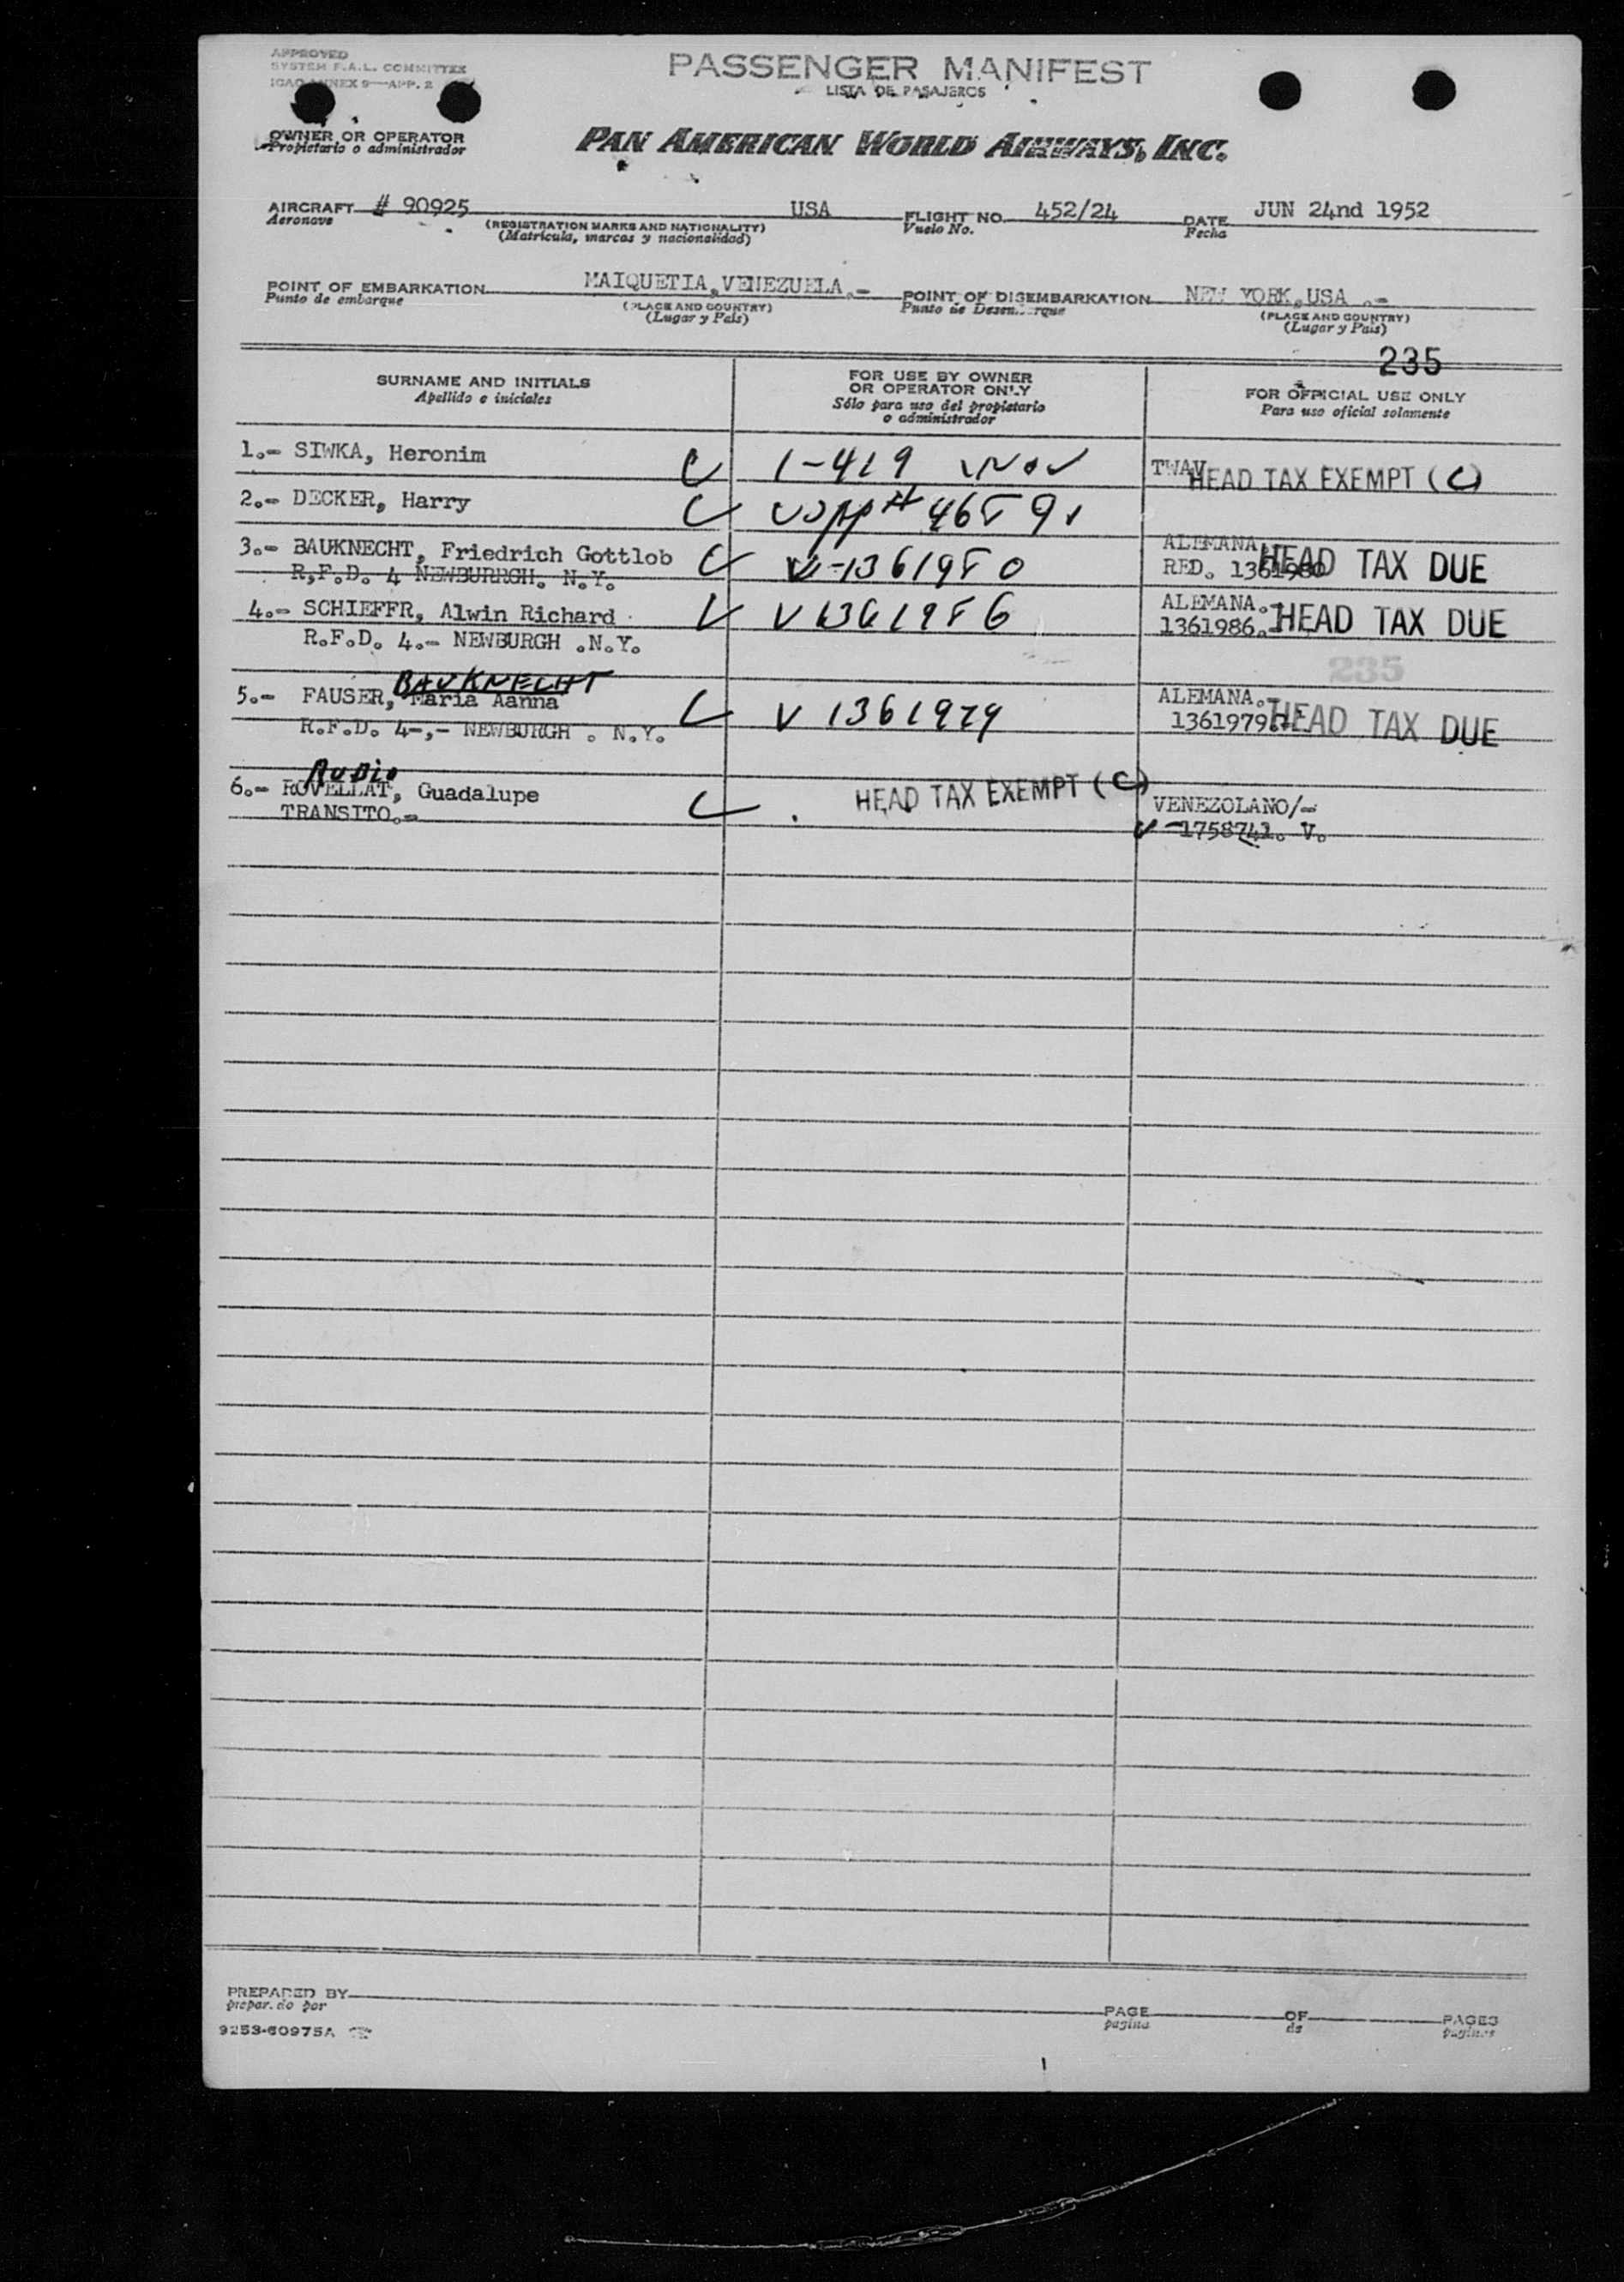 APPROVED
SYSTEM F.A.L. COMMITTEE
ANNEX 9—APP. 2
PASSENGER MANIFEST
LISTA DE PASAJEROS
OWNER OR OPERATOR
Propietario o administrador
PAN AMERICAN WORLD AIRWAYS, INC.
AIRCRAFT # 90925 USA FLIGHT NO. 452/24 DATE JUN 24nd 1952
Aeronave (REGISTRATION MARKS AND NATIONALITY) Vuelo No. Fecha
(Matrícula, marcas y nacionalidad)
POINT OF EMBARKATION MAIQUETIA,VENEZUELA.- POINT OF DISEMBARKATION NEW YORK,USA .-
Punto de embarque (PLACE AND COUNTRY) Punto de (PLACE AND COUNTRY)
(Lugar y País) (Lugar y País)
235
SURNAME AND INITIALS FOR USE BY OWNER OR OPERATOR ONLY FOR OFFICIAL USE ONLY
Apellido e iniciales Sólo para uso del propietario o administrador Para uso oficial solamente
1.- SIWKA, Heronim 1-419 HEAD TAX EXEMPT (C)
2.- DECKER, Harry
3.- BAUKNECHT, Friedrich Gottlob V-1361980 ALEMANA. HEAD TAX DUE
R,F.D. 4 NEWBURRGH. N.Y. RED. 1361980
4.- SCHIEFFR, Alwin Richard V 1361986 ALEMANA.- HEAD TAX DUE
R.F.D. 4.- NEWBURGH .N.Y. 1361986.-
235
BAUKNECHT
5.- FAUSER, Maria Aanna V 1361979 ALEMANA.- HEAD TAX DUE
R.F.D. 4-,- NEWBURGH . N.Y. 1361979.-
Rubio
6.- ROVELLAT, Guadalupe HEAD TAX EXEMPT (C) VENEZOLANO/-
TRANSITO.- V -1758741. V.
PREPARED BY
prepar. do por
PAGE OF PAGES
pagina de paginas
9253-60975A